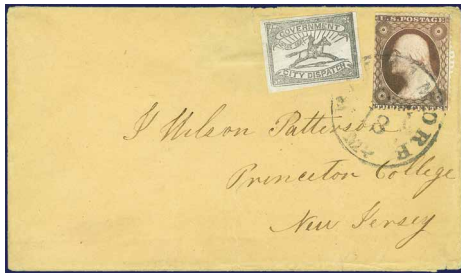 GOVERNMENT
CITY DISPATCH
U.S. POSTAGE
THREE CENTS
J Wilson Patterson
Princeton College
New Jersey